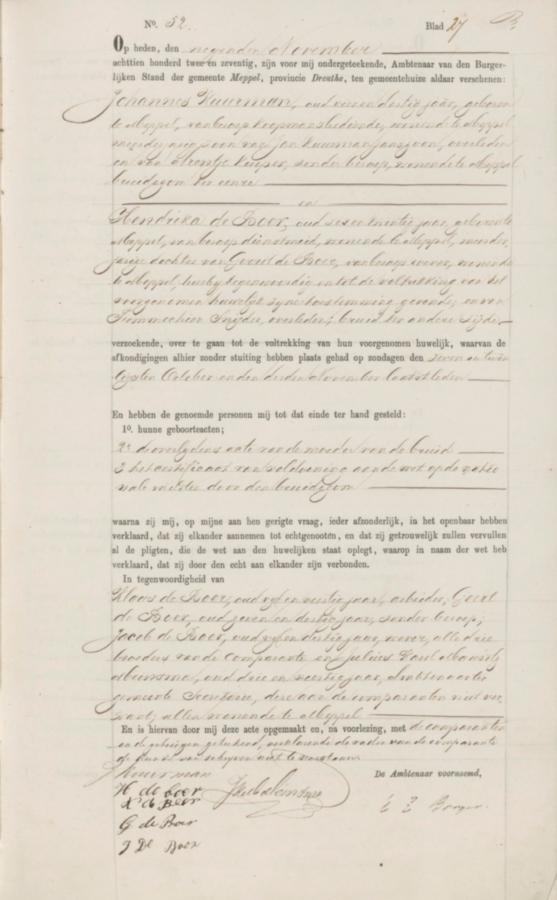 No. 52. Blad 27
Op heden, den negenden November
achttien honderd twee en zeventig, zijn voor mij ondergeteekende, Ambtenaar van den Burger-
lijken Stand der gemeente Meppel, provincie Drenthe, ten gemeentehuize aldaar verschenen:
Johannes Kuurman, oud dertig jaar, geboren
te Meppel, van beroep koopmansbediende, wonende te Meppel
meerderjarige zoon van Jan Kuurman Janszoon, overleden
en van Kuiper, zonder beroep, wonende te Meppel
bruidegom ter eenre
en
Hendrika de Boer, oud zes en twintig jaar, geboren te
Meppel, van beroep dienstmeid, wonende te Meppel, meerder
jarige dochter van Geert de Boer, van beroep wever, wonende
te Meppel, hierbij tegenwoordig en tot de voltrekking van het
voorgenomen huwelijk zijne toestemming gevende, en van
Snijder, overleden; bruid ter andere zijde
verzoekende, over te gaan tot de voltrekking van hun voorgenomen huwelijk, waarvan de
afkondigingen alhier zonder stuiting hebben plaats gehad op zondagen den zeven en twin
tigsten October en den derden November laatstleden
En hebben de genoemde personen mij tot dat einde ter hand gesteld:
1o. hunne geboorteacten;
2o de overlijdens acte van de moeder van de bruid
3 het certificaat van voldoening aan de wet op de natio
nale militie door den bruidegom
waarna zij mij, op mijne aan hen gerigte vraag, ieder afzonderlijk, in het openbaar hebben
verklaard, dat zij elkander aannemen tot echtgenooten, en dat zij getrouwelijk zullen vervullen
al de pligten, die de wet aan den huwelijken staat oplegt, waarop in naam der wet heb
verklaard, dat zij door den echt aan elkander zijn verbonden.
In tegenwoordigheid van
Klaas de Boer, oud vijf en veertig jaar, arbeider, Geert
de Boer, oud zeven en dertig jaar, zonder beroep,
Jacob de Boer, oud vijf en dertig jaar, wever, alle drie
broeders van de comparante en Julius
oud drie en veertig jaar, ambtenaar ter
gemeente Secretarie, deze aan de comparanten niet ver
want, allen wonende te Meppel
En is hiervan door mij deze acte opgemaakt en, na voorlezing, met de comparanten
en de getuigen geteekend, verklarende de vader van de comparante
de kunst van schrijven niet te verstaan
J Kuurman
H de boer
K de Boer
G de Boer
J De Boer
De Ambtenaar voornoemd,